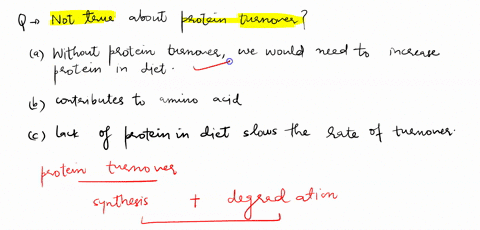 Q→ Not true about protein turnover?
(a) Without protein turnover, we would need to increase
protein in diet.
(b) contributes to amino acid
(c) lack of protein in diet slows the rate of turnover.
protein turnover
synthesis + degradation